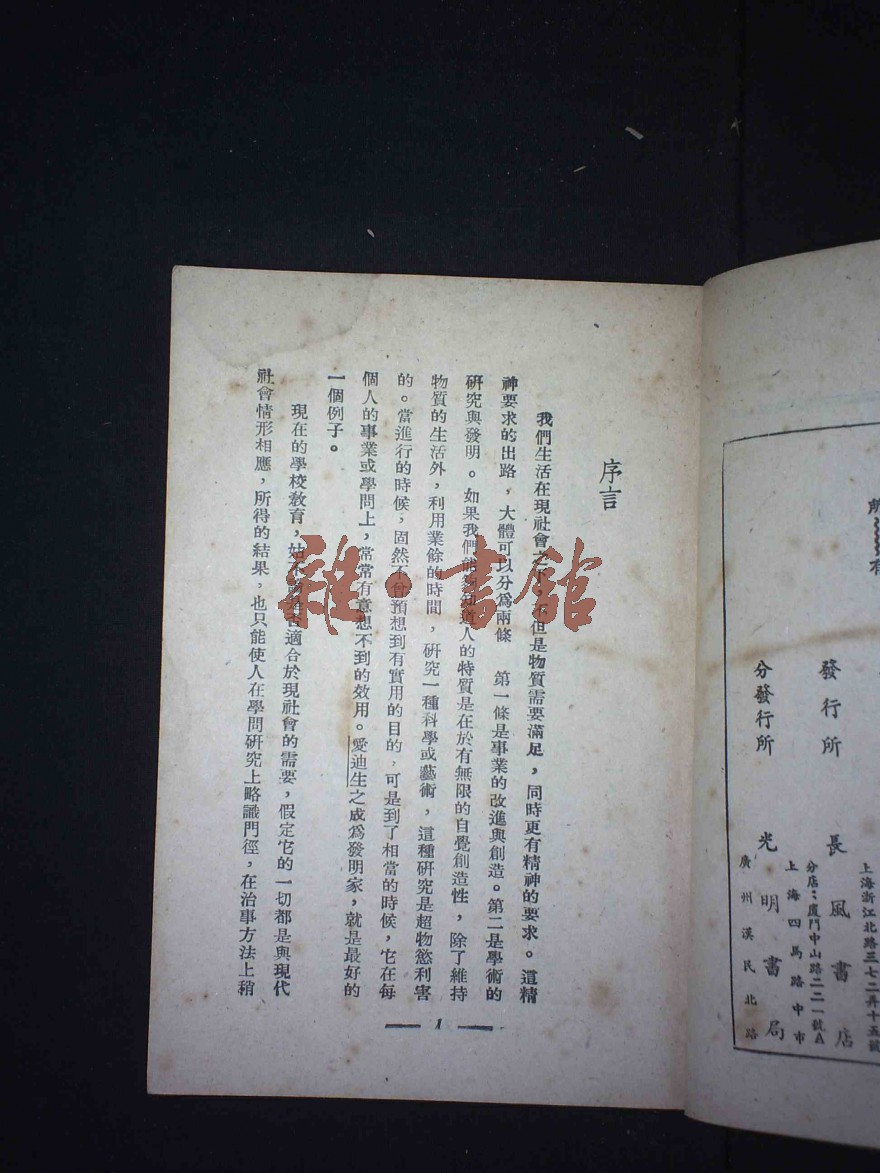 所
有
上海浙江北路三七二弄十五號
發行所 長風書店
分店：廈門中山路二二一號A
上海四馬路中市
分發行所 光明書局
廣州漢民北路
序言
我們生活在現社會之下，不但是物質需要滿足，同時更有精神的要求。這精
神要求的出路，大體可以分爲兩條 第一條是事業的改進與創造。第二是學術的
研究與發明。如果我們能夠知道人的特質是在於有無限的自覺創造性，除了維持
物質的生活外，利用業餘的時間，研究一種科學或藝術，這種研究是超物慾利害
的。當進行的時候，固然不曾預想到有實用的目的，可是到了相當的時候，它在每
個人的事業或學問上，常常有意想不到的效用。愛迪生之成爲發明家，就是最好的
一個例子。
現在的學校教育，姑不論是否適合於現社會的需要，假定它的一切都是與現代
社會情形相應，所得的結果，也只能使人在學問研究上略識門徑，在治事方法上稍
1
雜·書館